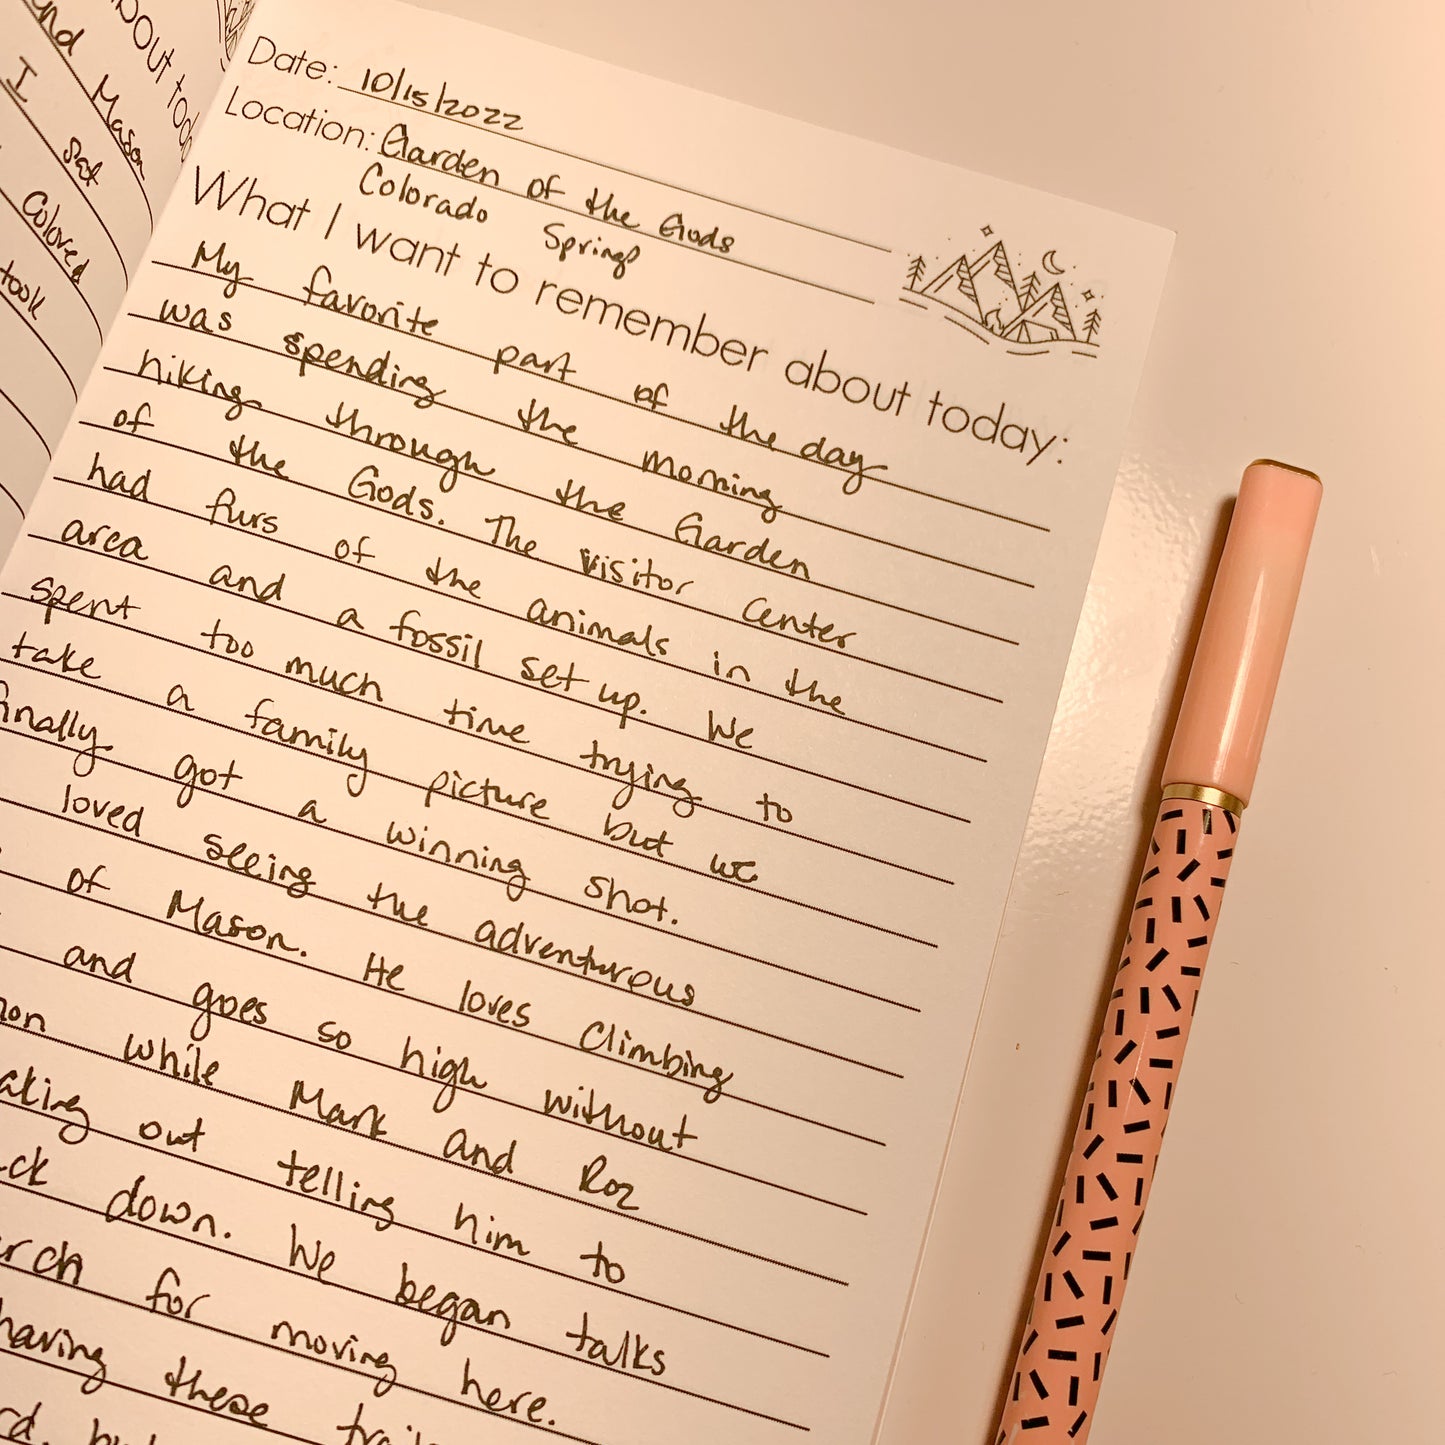 about today
and Mason
I sat
Colored
took
Date: 10/15/2022
Location: Garden of the Gods
Colorado Springs
What I want to remember about today:
My favorite part of the day
was spending the morning
hiking through the Garden
of the Gods. The visitor center
had furs of the animals in the
area and a fossil set up. We
spent too much time trying to
take a family picture but we
finally got a winning shot.
loved seeing the adventurous
of Mason. He loves climbing
and goes so high without
while Mark and Roz
out telling him to
down. We began talks
for moving here.
having these